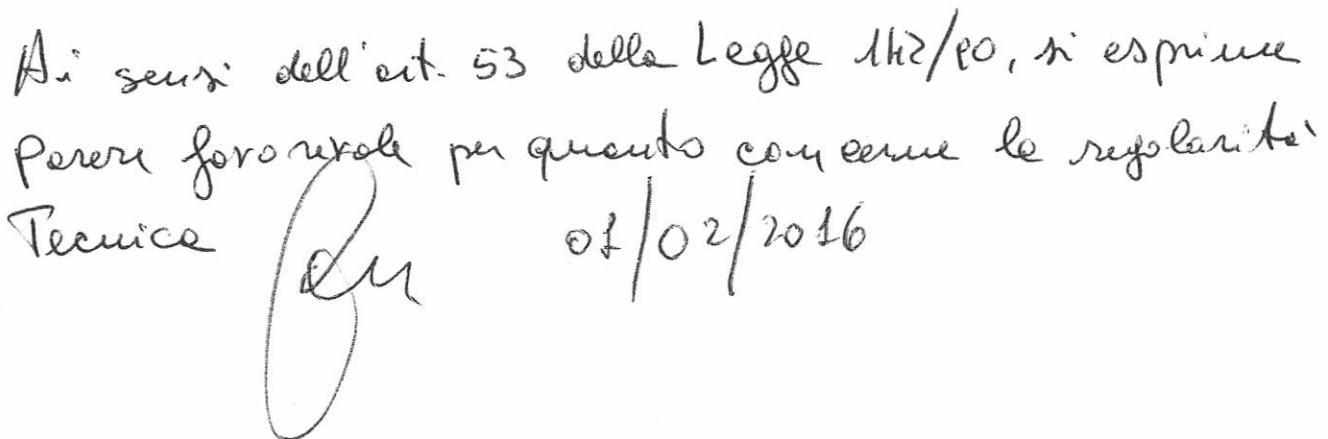 Ai sensi dell'art. 53 della Legge 142/90, si esprime
Parere favorevole per quanto concerne la regolarità
Tecnica 01/02/2016